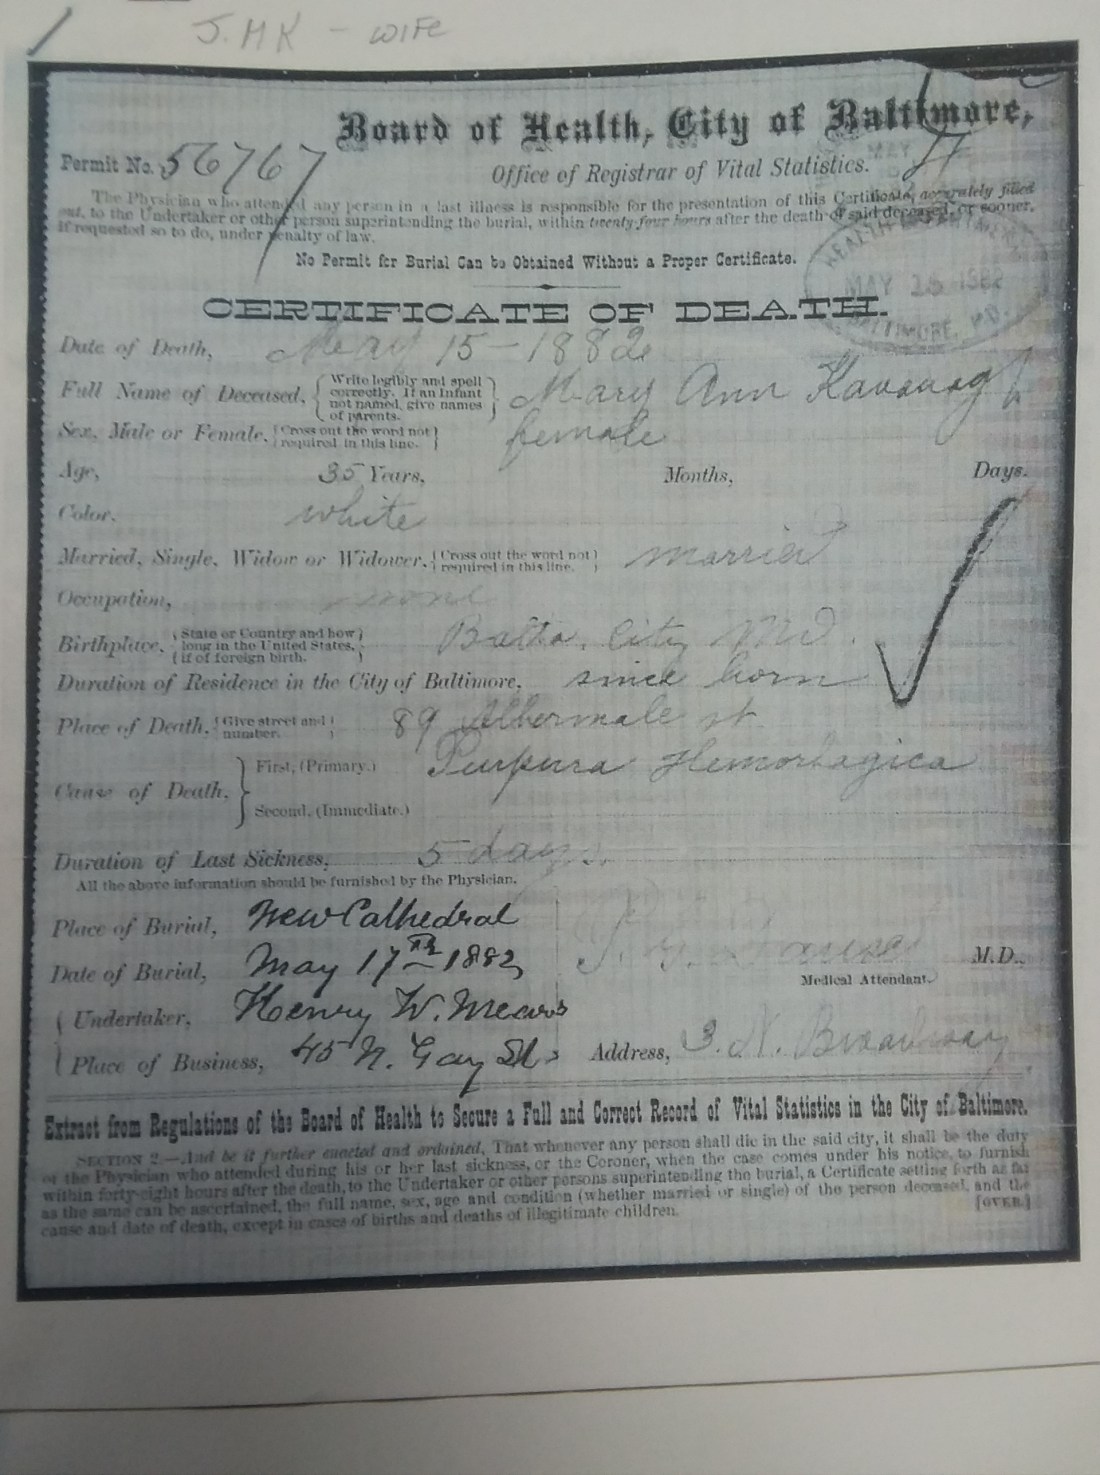 J. M K - WIFE
Board of Health, City of Baltimore,
Permit No. 56767
Office of Registrar of Vital Statistics.
The Physician who attended any person in a last illness is responsible for the presentation of this Certificate, accurately filled
out, to the Undertaker or other person superintending the burial, within twenty-four hours after the death of said deceased, or sooner,
if requested so to do, under penalty of law.
No Permit for Burial Can be Obtained Without a Proper Certificate.
HEALTH DEPARTMENT
MAY 1882
BALTIMORE, MD.
CERTIFICATE OF DEATH.
Date of Death, May 15 - 1882
Full Name of Deceased, { Write legibly and spell correctly. If an Infant not named, give names of parents. } Mary Ann Kavanagh
Sex, Male or Female, { Cross out the word not required in this line. } female
Age, 35 Years, Months, Days.
Color, white
Married, Single, Widow or Widower, { Cross out the word not required in this line. } married
Occupation, none
Birthplace, { State or Country and how long in the United States, if of foreign birth. } Balto. City Md.
Duration of Residence in the City of Baltimore, since born
Place of Death, { Give street and number. } 89 Albermale st
Cause of Death, { First, (Primary.) Purpura Hemorhagica
Second, (Immediate.)
Duration of Last Sickness, 5 days.
All the above information should be furnished by the Physician.
Place of Burial, New Cathedral
Date of Burial, May 17th 1882
M.D.,
Medical Attendant.
{ Undertaker, Henry W. Mears
{ Place of Business, 45 N. Gay St. Address, 3. N. Broadway
Extract from Regulations of the Board of Health to Secure a Full and Correct Record of Vital Statistics in the City of Baltimore.
SECTION 2.—And be it further enacted and ordained, That whenever any person shall die in the said city, it shall be the duty
of the Physician who attended during his or her last sickness, or the Coroner, when the case comes under his notice, to furnish
within forty-eight hours after the death, to the Undertaker or other persons superintending the burial, a Certificate setting forth as far
as the same can be ascertained, the full name, sex, age and condition (whether married or single) of the person deceased, and the
cause and date of death, except in cases of births and deaths of illegitimate children.
[OVER.]